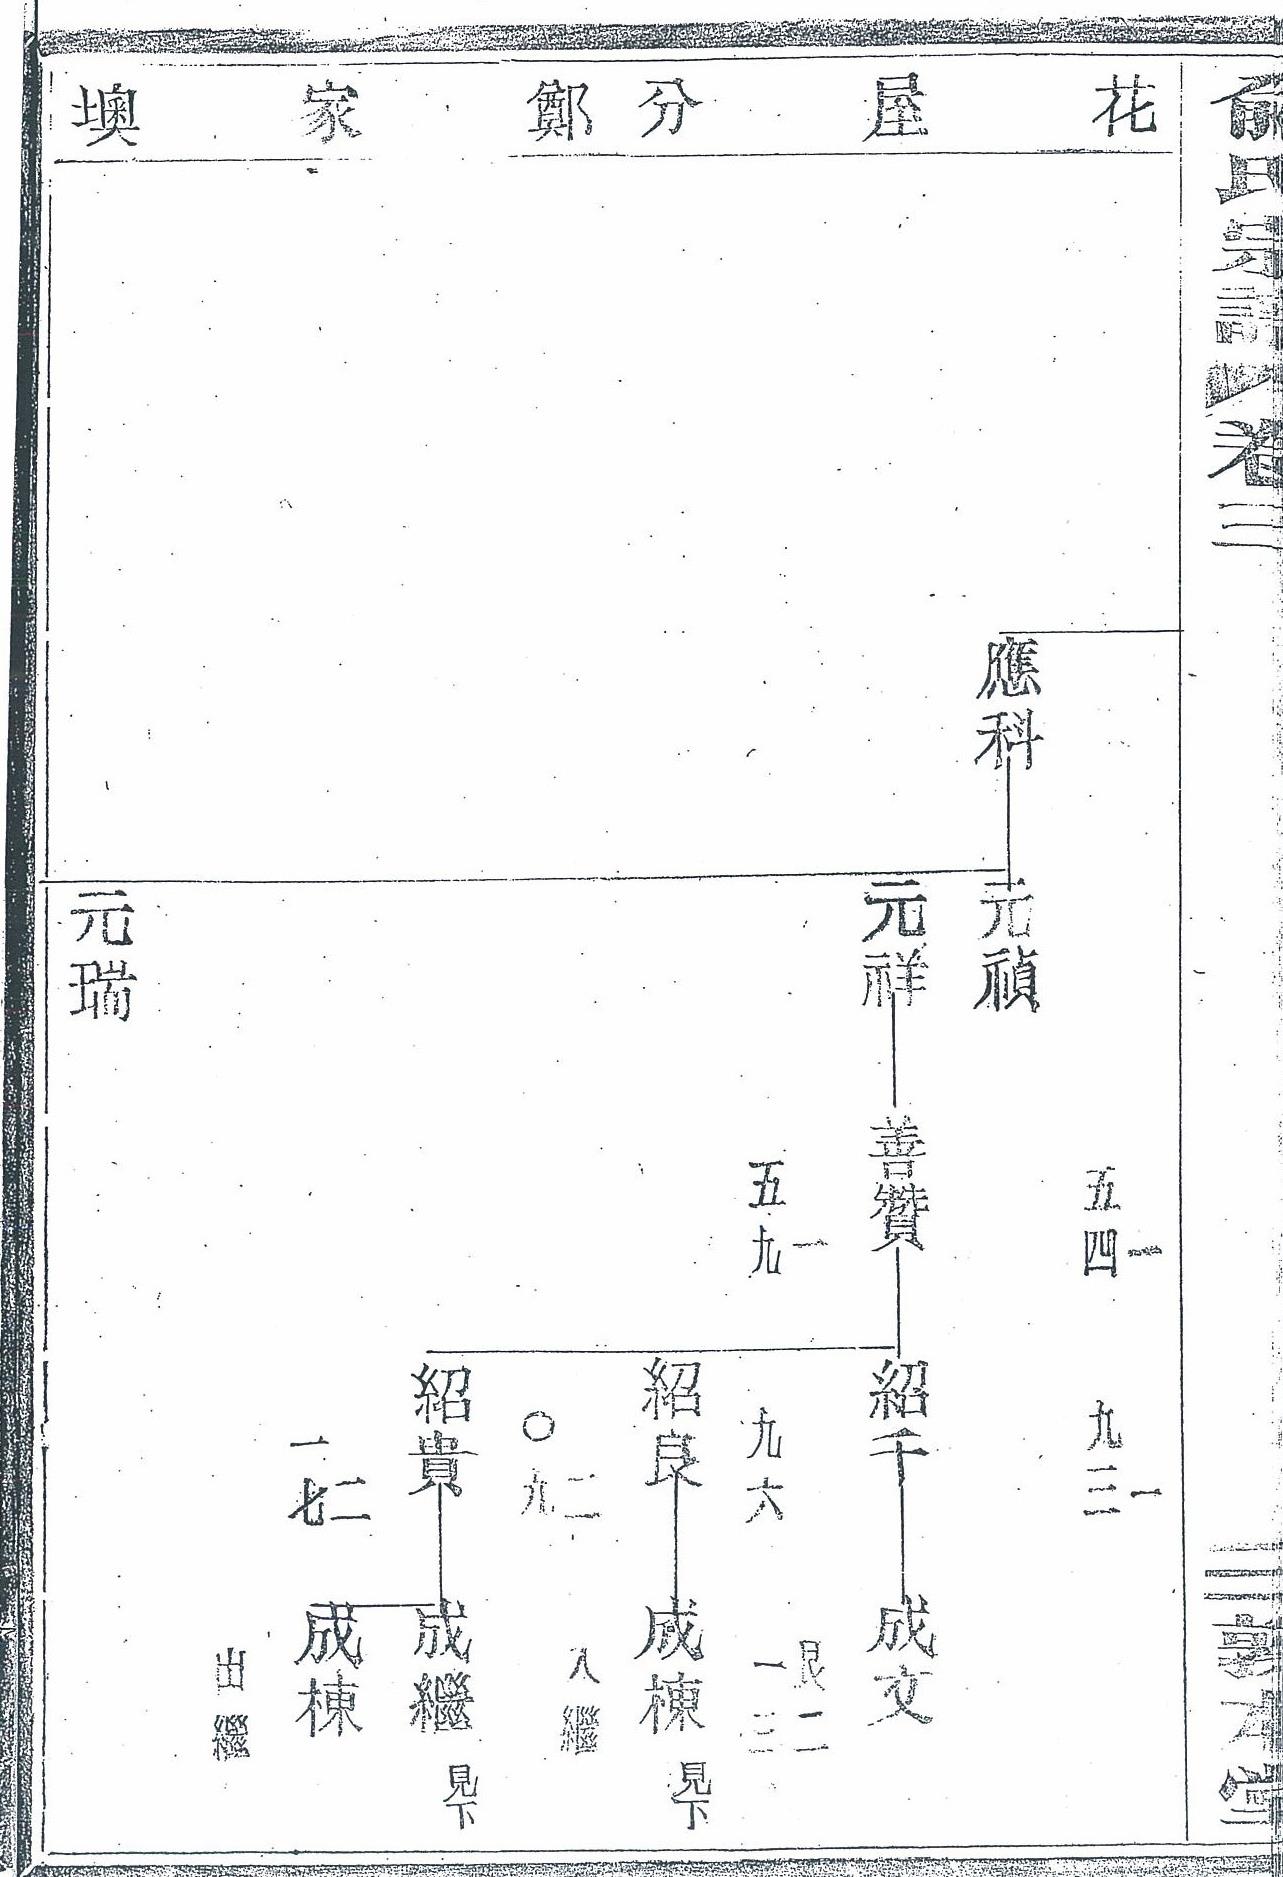 俞氏宗譜 卷三
三 敦本堂
花屋分鄭家墺
應科
元禎
元祥
元瑞
善贊
五四一
五九一
紹千
紹良
紹貴
九三一
九六
〇九二
一七二
成文
艮二
一三
成棟
見下
入繼
成繼
見下
成棟
出繼